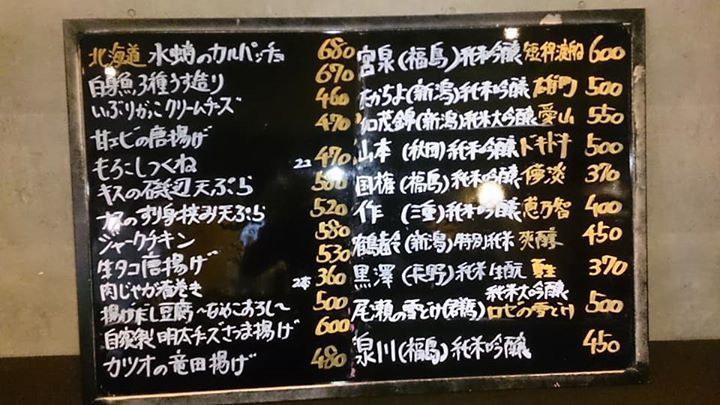 北海道 水蛸のカルパッチョ 680
白身魚3種うす造り 670
いぶりがっこクリームチーズ 460
甘エビの唐揚げ 470
もろこしつくね 2コ 470
キスの磯辺天ぷら 500
すり身挟み天ぷら 520
ジャークチキン 580
生タコ唐揚げ 530
肉じゃが春巻き 2本 360
揚げだし豆腐〜なめこおろし〜 500
自家製明太チーズさつま揚げ 600
カツオの竜田揚げ 480
宮泉(福島)純米吟醸 600
たかちよ(新潟)純米吟醸 雄町 500
加茂錦(新潟)純米大吟醸 愛山 550
山本(秋田)純米吟醸 ドキドキ 500
国権(福島)純米吟醸 370
作(三重)純米吟醸 恵乃智 400
鶴齢(新潟)特別純米 爽醇 450
黒澤(長野)純米生酛 370
尾瀬の雪どけ(群馬)純米大吟醸 ロゼの雪どけ 500
泉川(福島)純米吟醸 450